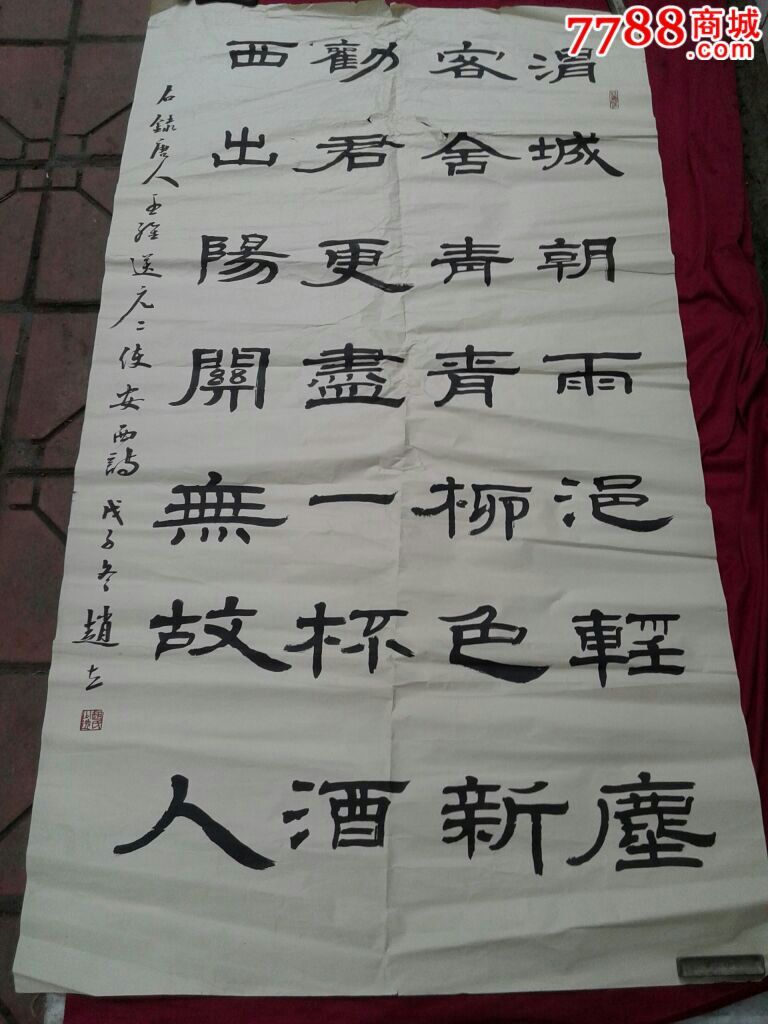 渭城朝雨浥輕塵
客舍青青柳色新
勸君更盡一杯酒
西出陽關無故人
右錄唐人王維送元二使安西詩 戊子冬 趙立
7788商城
.com